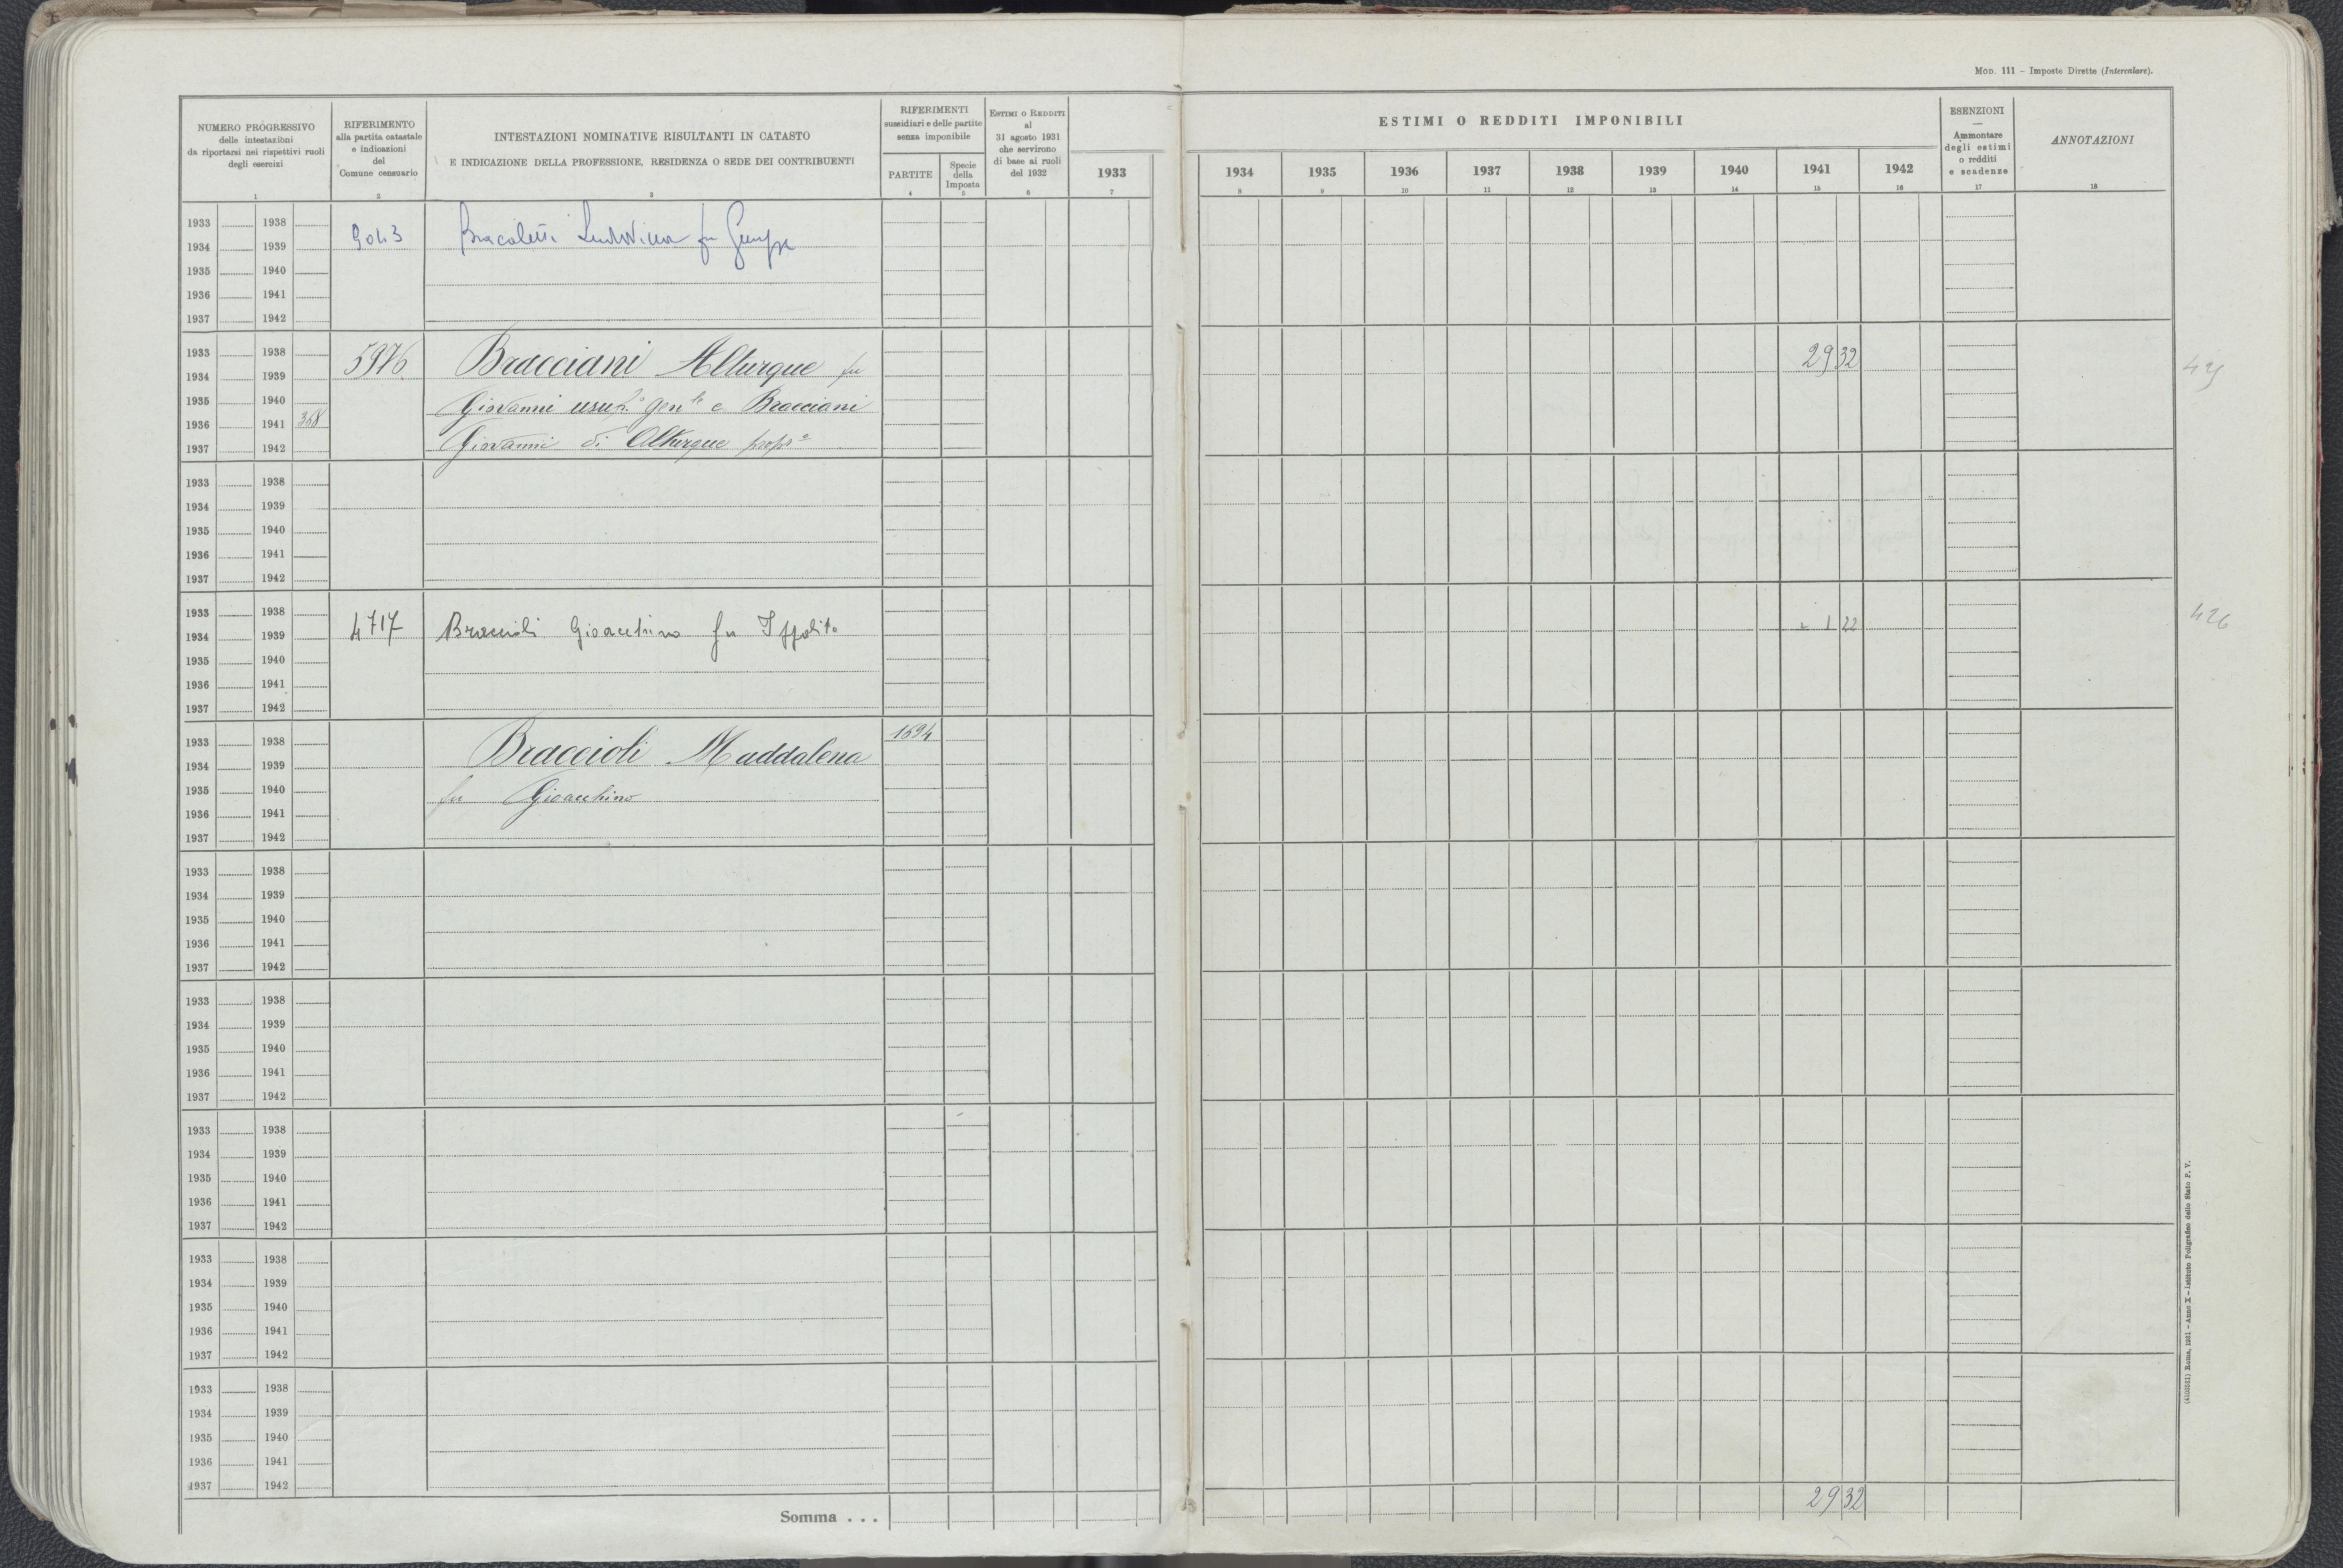 MOD. 111 - Imposte Dirette (Intercalare).
NUMERO PROGRESSIVO
delle intestazioni
da riportarsi nei rispettivi ruoli
degli esercizi
1
RIFERIMENTO
alla partita catastale
e indicazioni
del
Comune censuario
2
INTESTAZIONI NOMINATIVE RISULTANTI IN CATASTO
E INDICAZIONE DELLA PROFESSIONE, RESIDENZA O SEDE DEI CONTRIBUENTI
3
RIFERIMENTI
sussidiari e delle partite
senza imponibile
PARTITE
4
Specie
della
Imposta
5
ESTIMI O REDDITI
al
31 agosto 1931
che servirono
di base ai ruoli
del 1932
6
ESTIMI O REDDITI IMPONIBILI
1933 1934 1935 1936 1937 1938 1939 1940 1941 1942
7 8 9 10 11 12 13 14 15 16
ESENZIONI
—
Ammontare
degli estimi
o redditi
e scadenze
17
ANNOTAZIONI
18
1933 1938
9043 Bracaletti fu
1934 1939
1935 1940
1936 1941
1937 1942
1933 1938
5976 Bracciani Alturque fu 2932
1934 1939
1935 1940
Giovanni usuf. gen.le e Bracciani
1936 1941 368
Giovanni di Alturque prop.
1937 1942
1933 1938
1934 1939
1935 1940
1936 1941
1937 1942
1933 1938
4717 Braccioli Gioacchino fu Ippolito 1 22 426
1934 1939
1935 1940
1936 1941
1937 1942
1933 1938 1694
Braccioli Maddalena
1934 1939
1935 1940
fu Gioacchino
1936 1941
1937 1942
1933 1938
1934 1939
1935 1940
1936 1941
1937 1942
1933 1938
1934 1939
1935 1940
1936 1941
1937 1942
1933 1938
1934 1939
1935 1940
1936 1941
1937 1942
1933 1938
1934 1939
1935 1940
1936 1941
1937 1942
1933 1938
1934 1939
1935 1940
1936 1941
1937 1942
Somma . . . 2932
(4100251) Roma, 1931 - Anno X - Istituto Poligrafico dello Stato P. V.